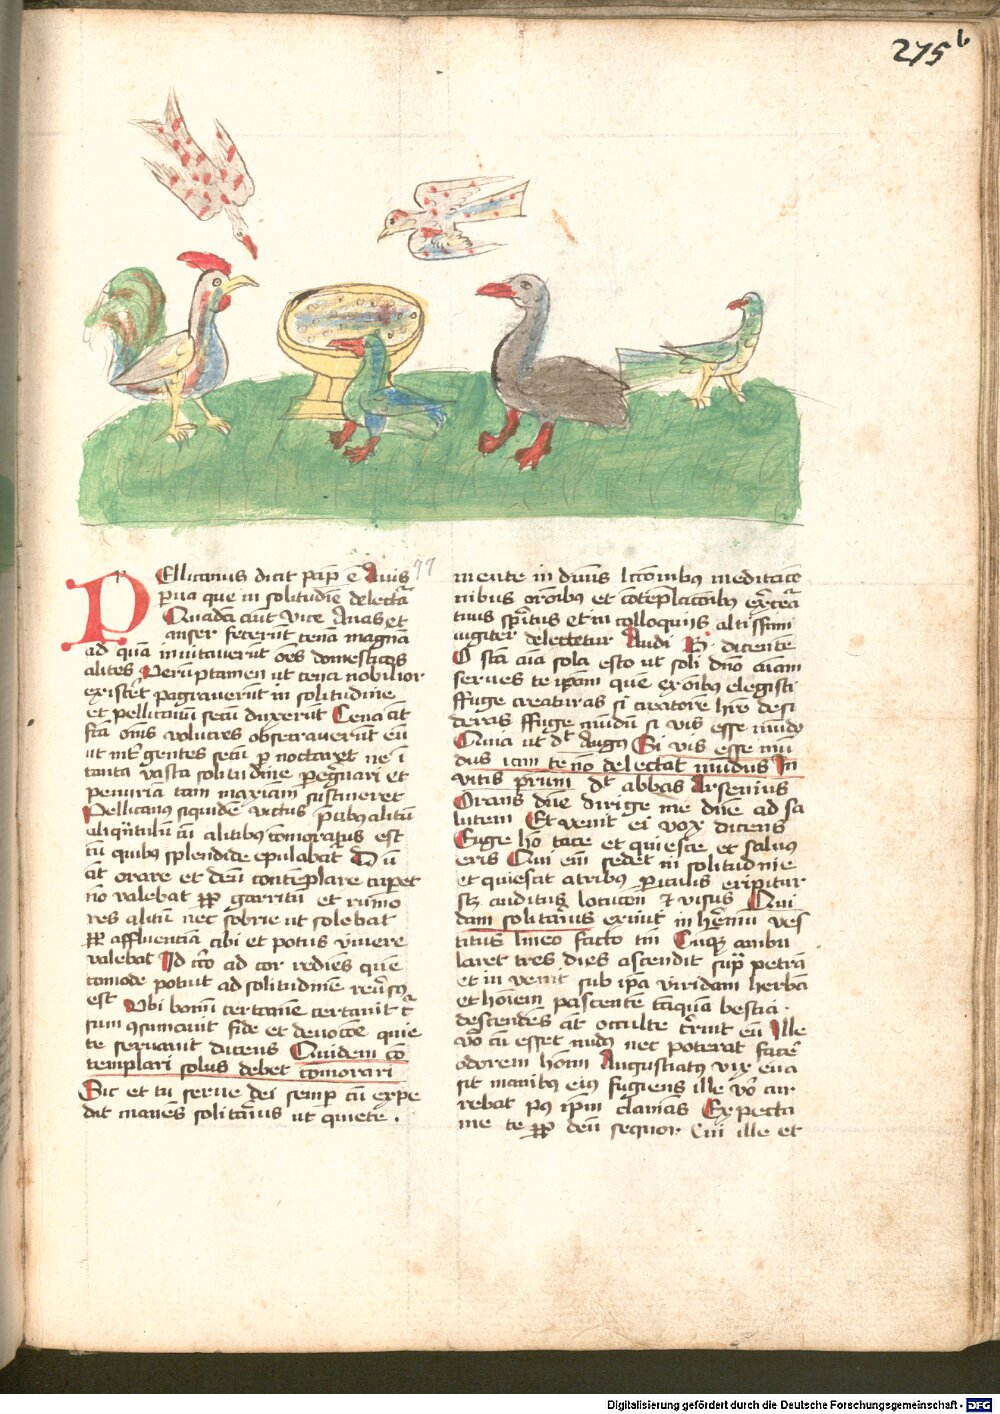 275 b
Pellicanus dicit Pap̄ ē Auis 77
parua que in solitudīe delectat̄
Quadā aūt vice Anas et
anser fecerūt cenā magnā
ad quā inuitauerūt oēs domesticas
alites Verūptamen ut cena nobilior
existeret pagrauerūt in solitudine
et pellicanū secū duxerūt Cena aūt
fc̄a om̄s volucres obsecrauerūt eū
ut int̄ gentes secū p noctaret ne ī
tanta vasta solitudine pegnari et
penuriā tam maxiam sustineret
Pellicanus siquidē victus pcibus alitū
aliqūtulū cū alitibus comoratus est
cū quibus splendide epulabat̄ Dū
aūt orare et deū contēplare cuperet
nō valebat pp garritū et rumo
res alitū nec sobrie ut solebat
pp affluenciā cibi et potus viuere
valebat Id circo ad cor rediēs quē
comode potuit ad solitudinē reūsus
est Vbi bonū certamē certauit c̄
sum ↄsumauit fide et deuocōe quie
te seruauit dicens Quidem cō
templari solus debet comorari
Sic et tu serue dei semp cū expe
dit maneās solitarius ut quiete .
mente in diuīs lc̄comibus meditacōe
nibus orōibus et cōtēplacōibus exerceat̄
tuus spūitus et in colloquijs altissimi
iugiter delectetur Audi B. dicentē
O sc̄a aīa sola esto ut soli dn̄o aīam
serues te ipam quē ex oībus elegisti
ffuge creaturas si creatorē hr̄e desi
deras ffuge mūdū si vis esse mūdus
Quia ut dt̄ Augus Si vis esse mū
dus iam te nō delectat mūdus In
vitis prum dt̄ abbas Arsenius
Orans dn̄e dirige me dn̄e ad sa
lutem Et venit ei vox dicens
Fuge ho tace et quiesce et saluus
eris Qui em̄ sedet in solitudine
et quiescit a tribus piculis eripitur
sc̄z auditus locucōn et visus Qui
dam solitarius exiuit in h̄emū ves
titus lineo sacco tm̄ Cūqz ambu
laret tres dies ascendit sup petrā
et in venit sub ipa viridam herbā
et hoīem pascentē tāquā bestia .
descendēs aūt occulte t̄nuit eū Ille
vō cū esset nudus nec poterat facē
odorem homī Angustiatus vix eua
sit manibus eius fugiens ille vō cur
rebat pus ipm̄ clamās Expecta
me te pp deū sequor Cui ille et
Digitalisierung gefördert durch die Deutsche Forschungsgemeinschaft - DFG